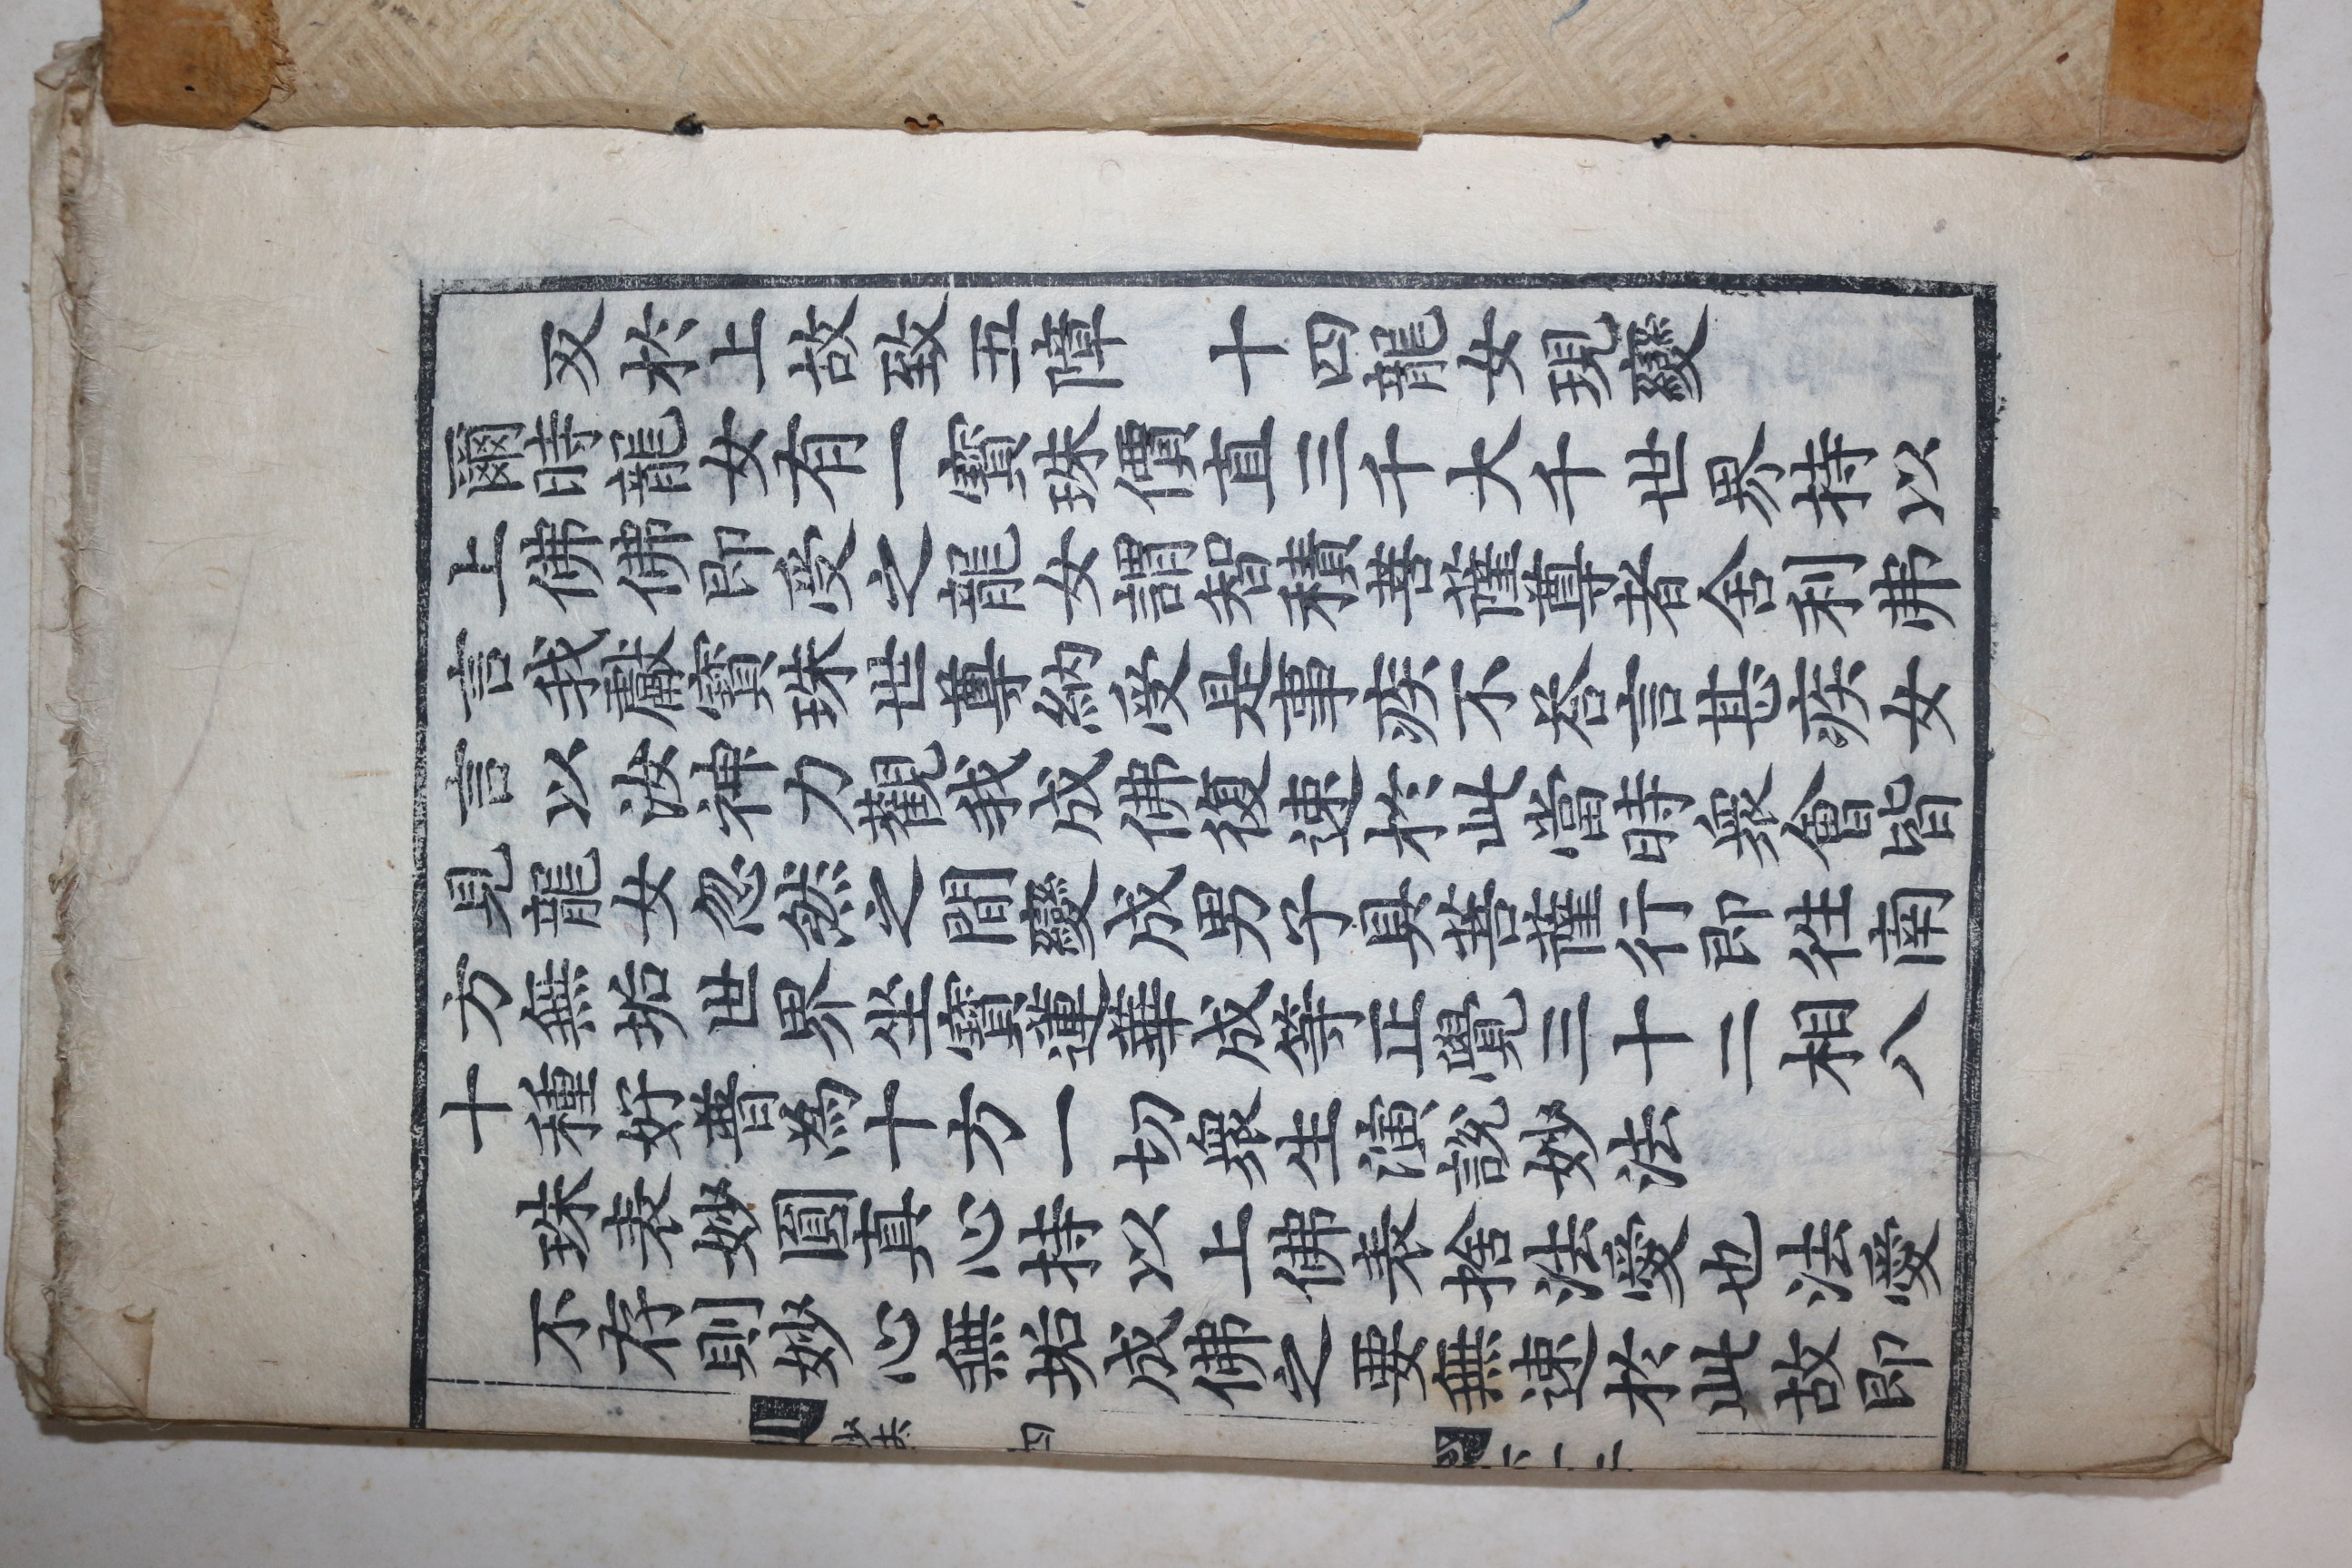 又於上故致五障　十四龍女現變
爾時龍女有一寶珠價直三千大千世界持以
上佛佛即受之龍女謂智積菩薩尊者舍利弗
言我獻寶珠世尊納受是事疾不答言甚疾女
言以汝神力觀我成佛復速於此當時衆會皆
見龍女忽然之間變成男子具菩薩行即往南
方無垢世界坐寶蓮華成等正覺三十二相八
十種好普為十方一切衆生演說妙法
珠表妙圓真心持以上佛表捨法愛也法愛
不存則妙心無垢成佛之要無速於此故即